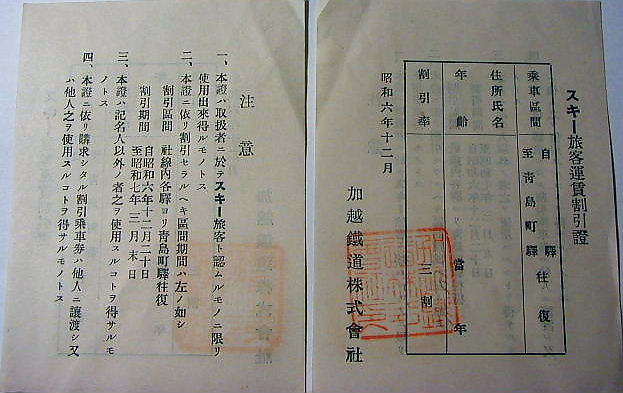 スキー旅客運賃割引證
乘車區間 自 驛 至青島町驛 往復
住所氏名
年齡 當 年
割引率 三割
昭和六年十二月
加越鐵道株式會社
注意
一、本證ハ取扱者ニ於テスキー旅客ト認ムルモノニ限リ
使用出來得ルモノトス
二、本證ニ依リ割引セラルヘキ區間期間ハ左ノ如シ
割引區間 社線內各驛ヨリ青島町驛往復
割引期間 自昭和六年十二月二十日
至昭和七年三月末日
三、本證ハ記名人以外ノ者之ヲ使用スルコトヲ得サルモ
ノトス
四、本證ニ依リ購求シタル割引乘車券ハ他人ニ讓渡シ又
ハ他人之ヲ使用スルコトヲ得サルモノトス